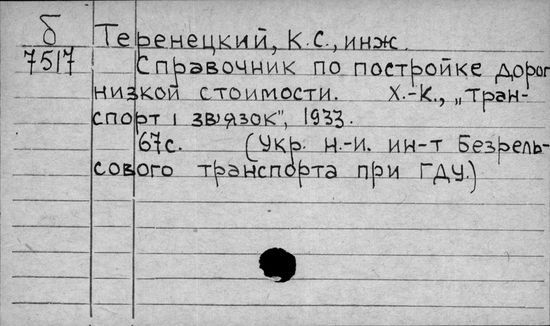 б
7517
Теренецкий, К.С., инж.
Справочник по постройке дорог
низкой стоимости. Х.-К., „Тран-
спорт і зв'язок", 1933.
67с. (Укр. н.-и. ин-т Безрель-
сового транспорта при ГДУ.)